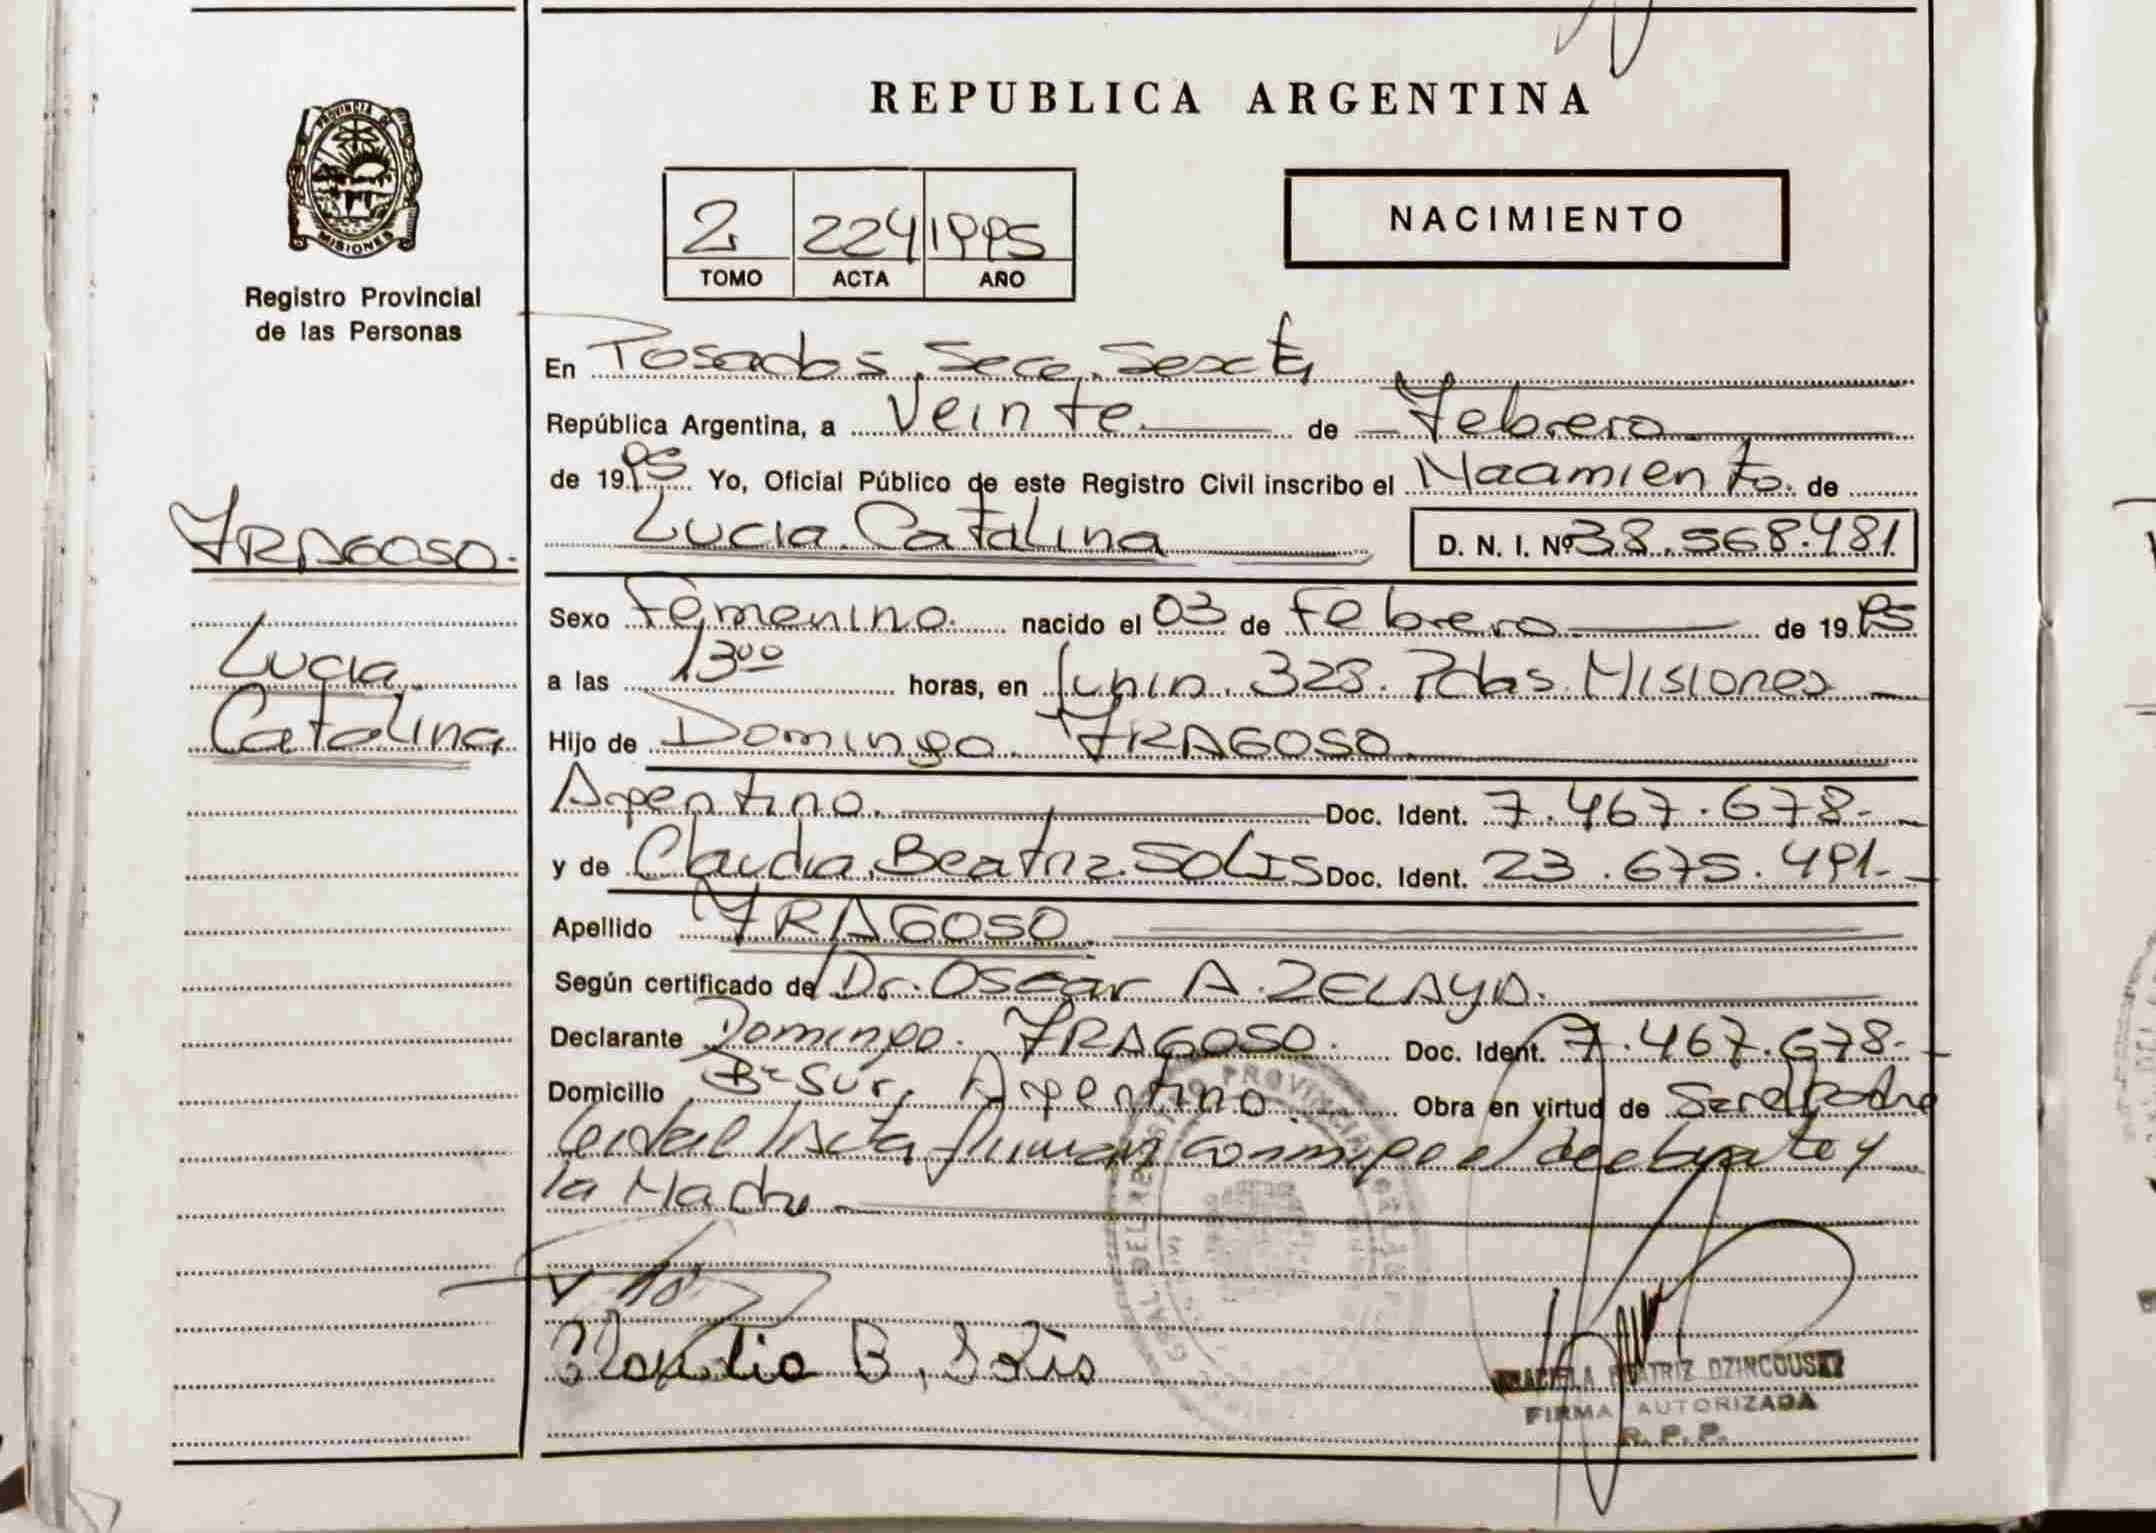 REPUBLICA ARGENTINA
PROVINCIA DE
MISIONES
Registro Provincial
de las Personas
2 224 1995
TOMO ACTA AÑO
NACIMIENTO
En Posadas, Secc. Sexta
República Argentina, a Veinte de Febrero
de 1995 Yo, Oficial Público de este Registro Civil inscribo el Nacimiento. de
Lucia Catalina D. N. I. Nº 38.568.481
FRAGOSO.
Lucia
Catalina
Sexo Femenino. nacido el 03 de Febrero de 1995
a las 13 00 horas, en Junin. 323. Pdas. Misiones
Hijo de Domingo. FRAGOSO.
Argentino. Doc. Ident. 7.467.678.-
y de Claudia Beatriz SOLIS Doc. Ident. 23.675.491.-
Apellido FRAGOSO.
Según certificado de Dr. Oscar A. ZELAYA.
Declarante Domingo. FRAGOSO. Doc. Ident. 7.467.678.-
Domicilio Bº Sur. Argentino. Obra en virtud de
Leida el Acta firman conmigo el declarante y
la Madre
Claudia B, Solis
BEATRIZ DZINCOUSKY
FIRMA AUTORIZADA
R. P. P.